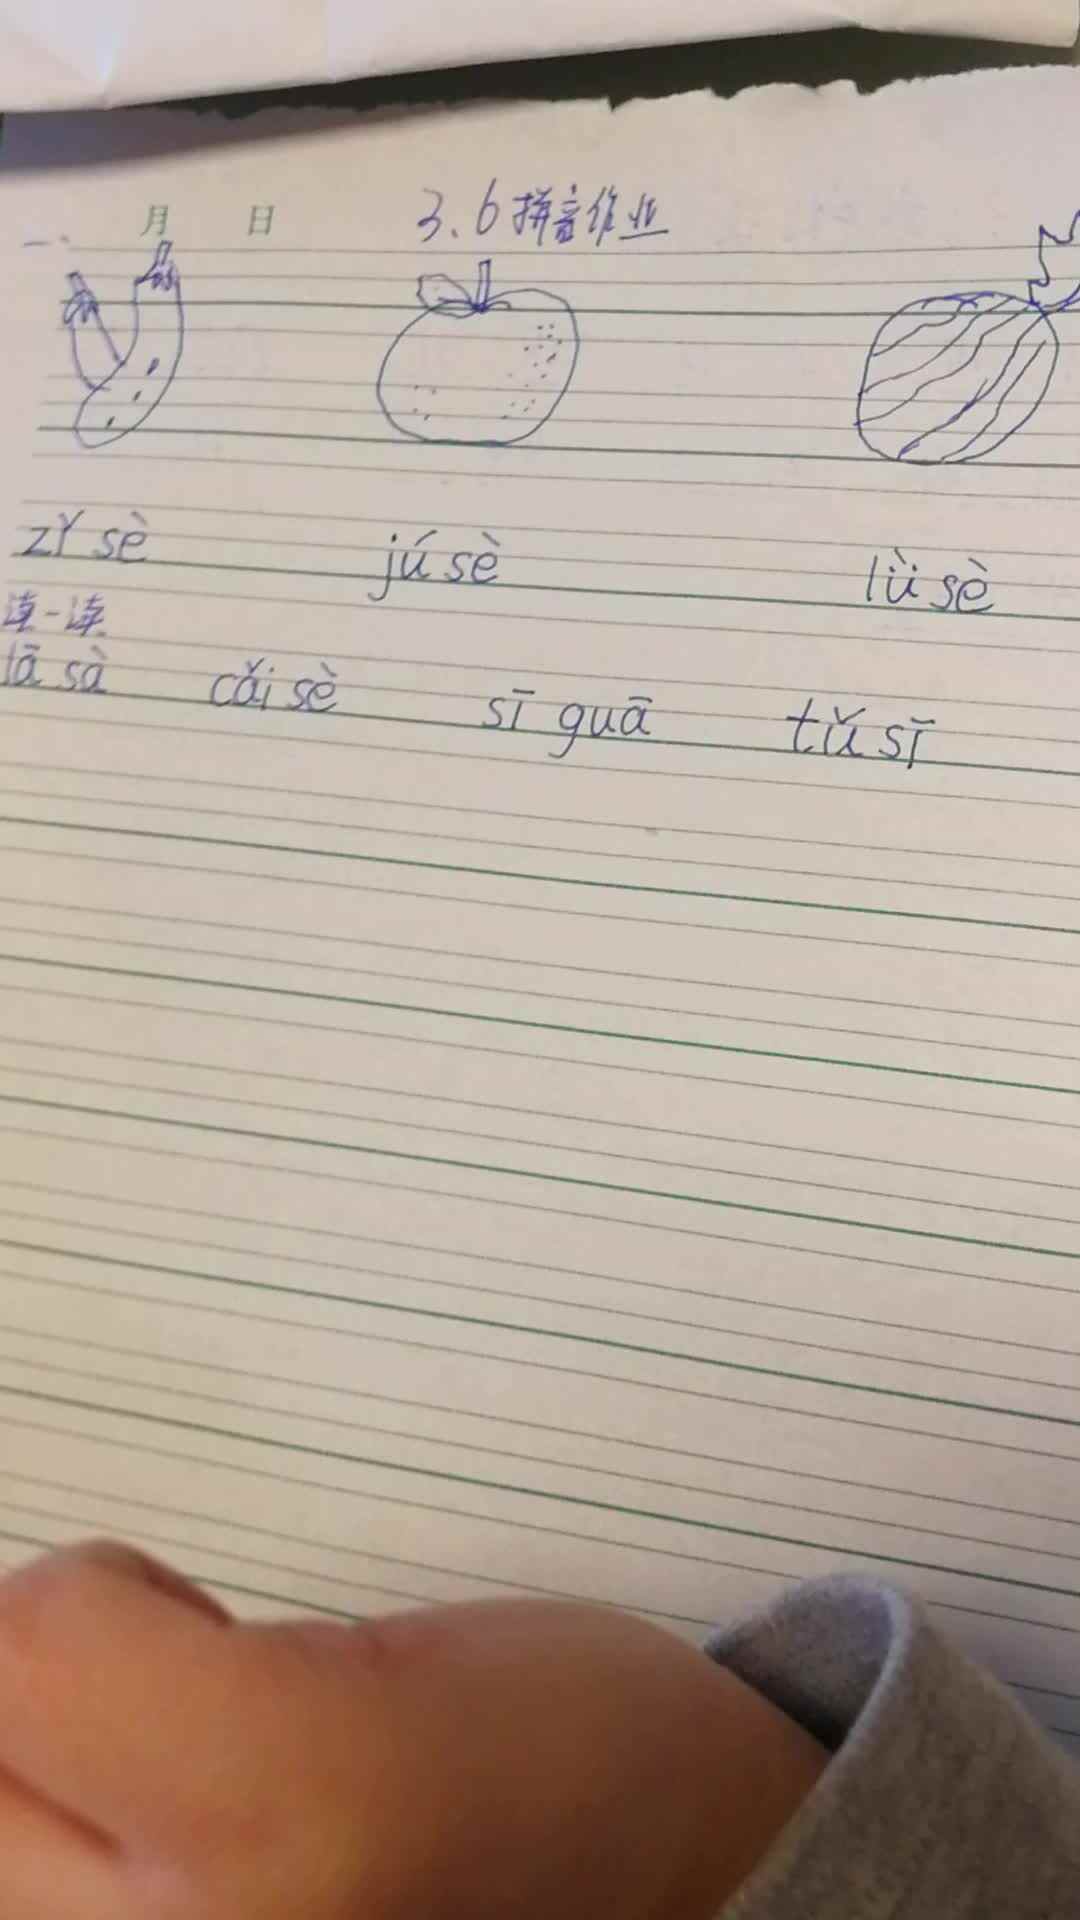 月 日 3.6拼音作业
一.
zǐ sè jú sè lǜ sè
读一读
lā sà cǎi sè sī guā tǔ sī